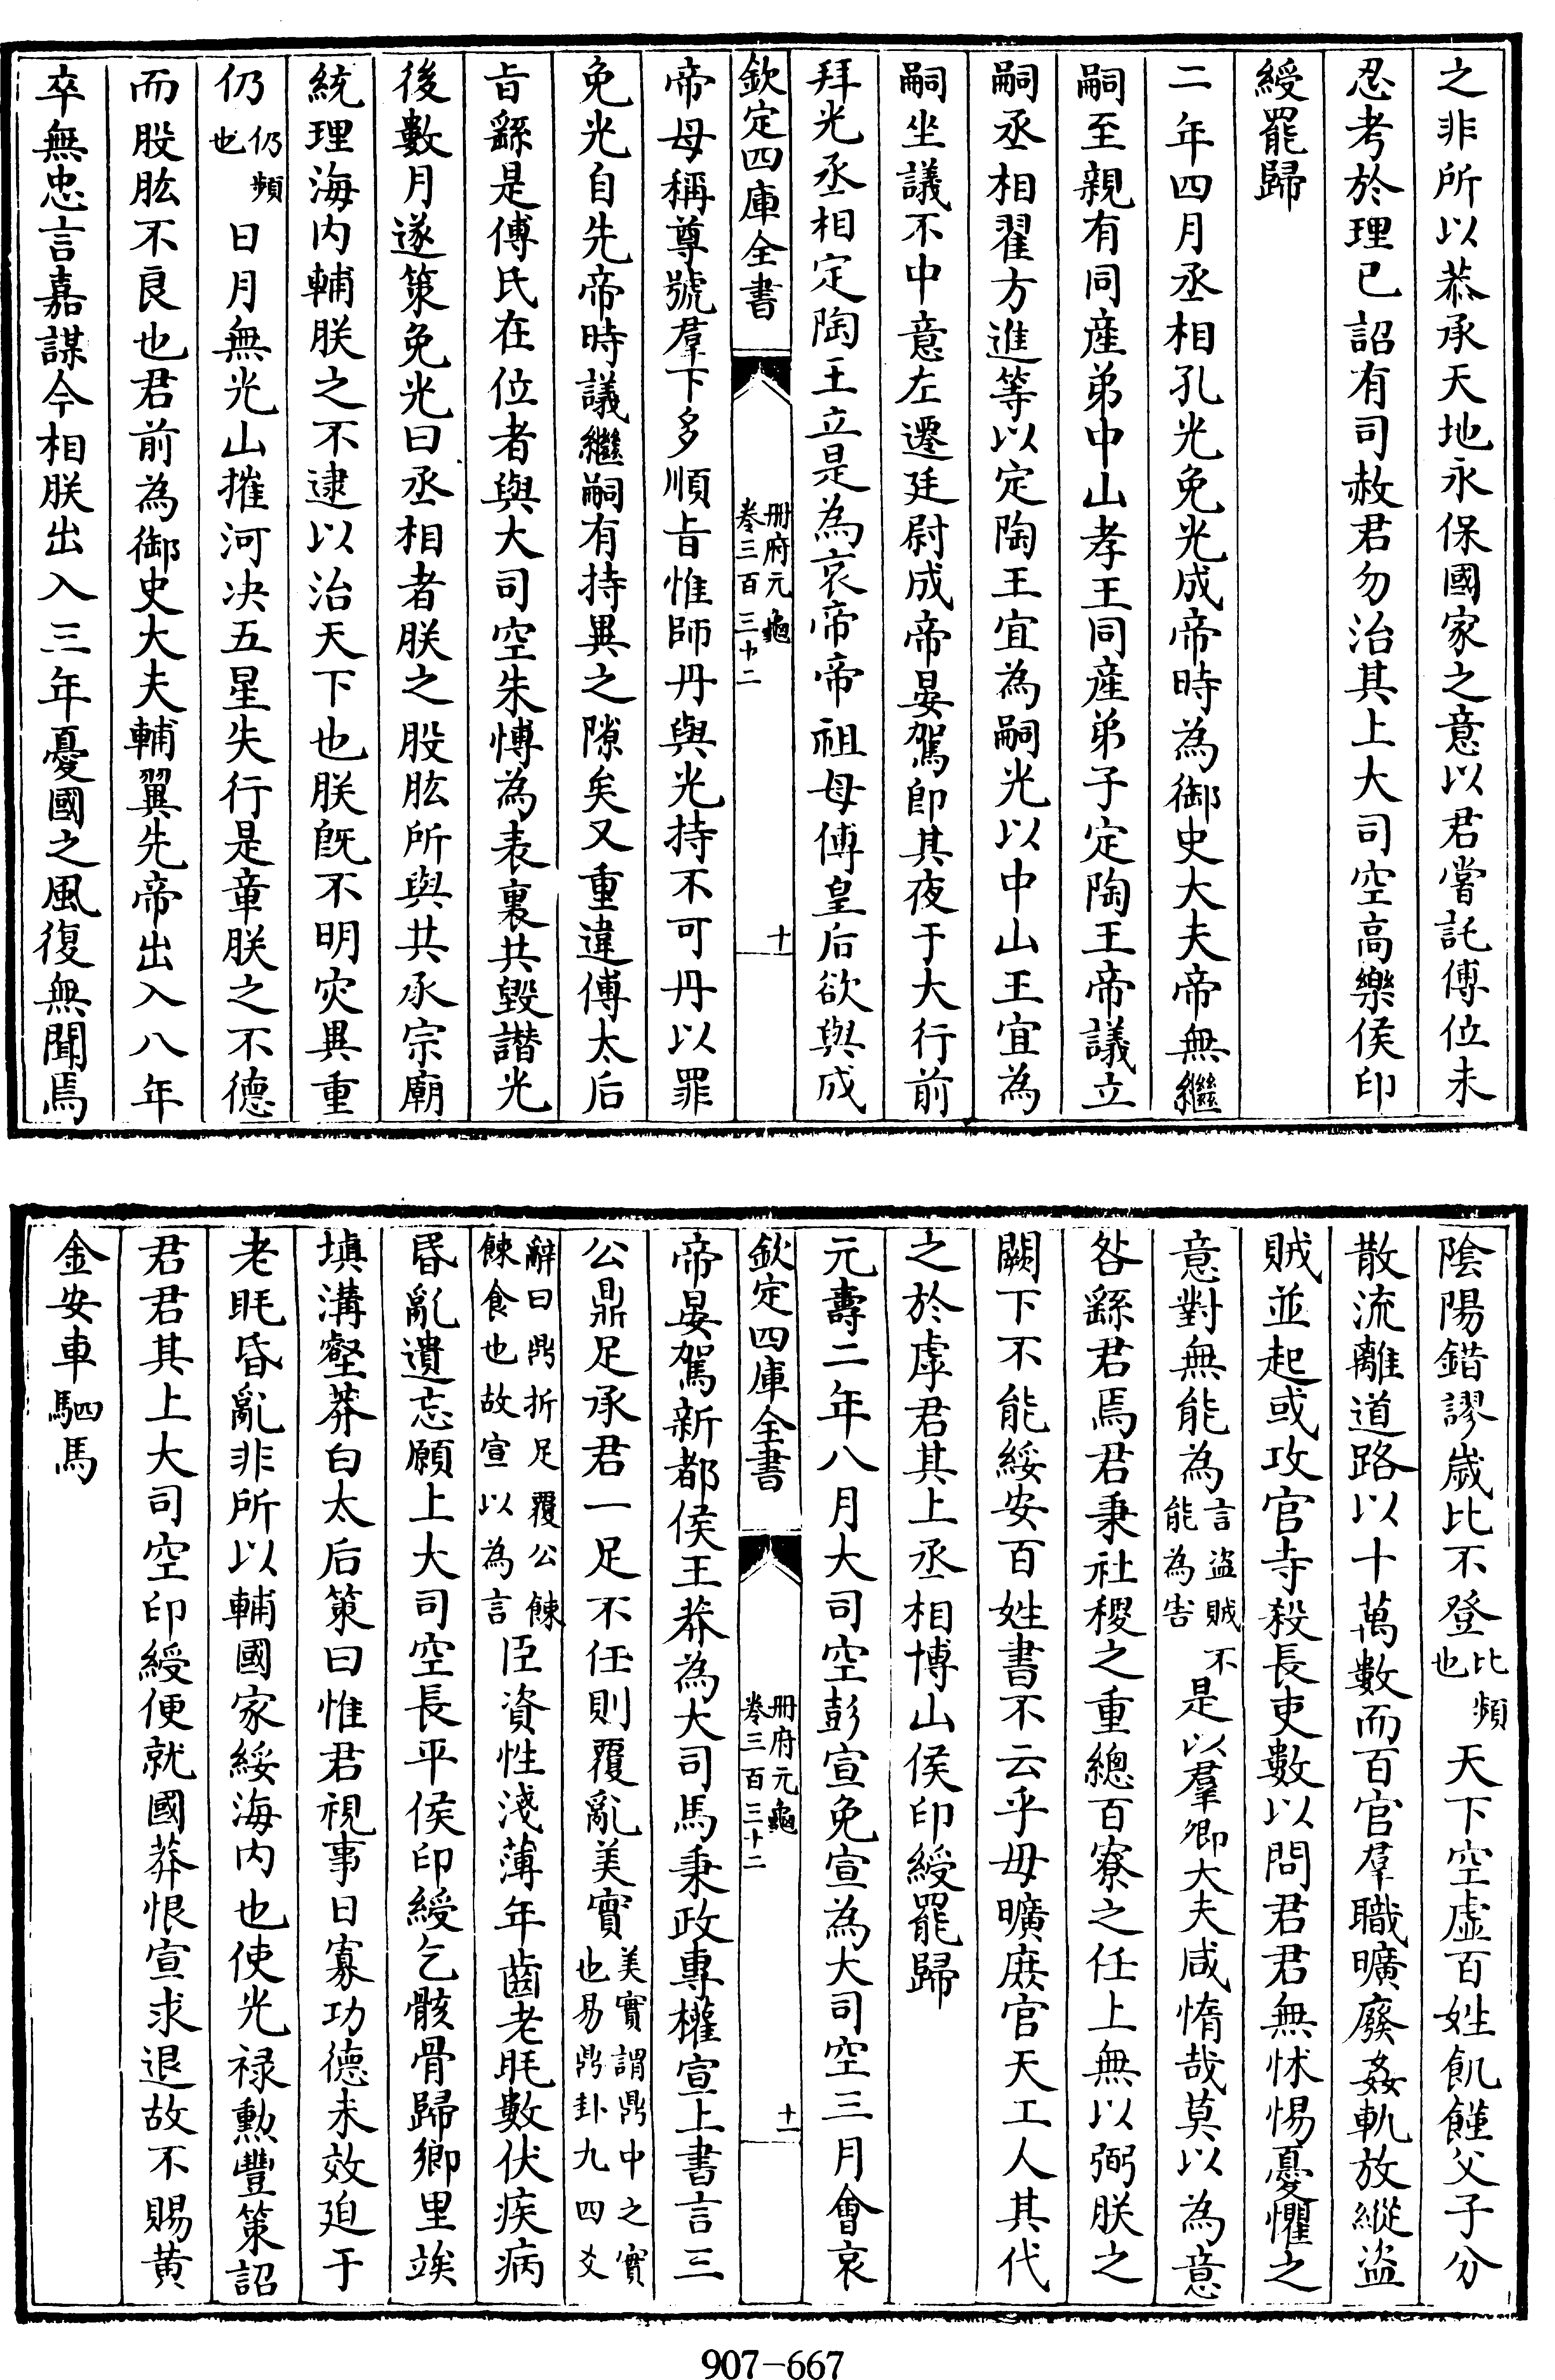 之非所以恭承天地永保國家之意以君嘗託傅位未
忍考於理已詔有司赦君勿治其上大司空高樂侯印
綬罷歸
二年四月丞相孔光免光成帝時為御史大夫帝無繼
嗣至親有同産弟中山孝王同産弟子定陶王帝議立
嗣丞相翟方進等以定陶王宜為嗣光以中山王宜為
嗣坐議不中意左遷廷尉成帝晏駕即其夜于大行前
拜光丞相定陶王立是為哀帝帝祖母傅皇后欲與成
欽定四庫全書
冊府元龜
卷三百三十二
十
帝母稱尊號羣下多順㫖惟師丹與光持不可丹以罪
免光自先帝時議繼嗣有持異之隙矣又重違傅太后
㫖繇是傅氏在位者與大司空朱博為表裏共毀譖光
後數月遂策免光曰丞相者朕之股肱所與共承宗廟
統理海内輔朕之不逮以治天下也朕既不明灾異重
仍仍頻也日月無光山摧河决五星失行是章朕之不德
而股肱不良也君前為御史大夫輔翼先帝出入八年
卒無忠言嘉謀今相朕出入三年憂國之風復無聞焉
陰陽錯謬歲比不登比頻也天下空虚百姓飢饉父子分
散流離道路以十萬數而百官羣職曠廢姦軌放縱盜
賊並起或攻官寺殺長吏數以問君君無怵惕憂懼之
意對無能為言盜賊不能為害是以羣卿大夫咸惰哉莫以為意
咎繇君焉君秉社稷之重總百寮之任上無以弼朕之
闕下不能綏安百姓書不云乎毋曠庶官天工人其代
之於虖君其上丞相博山侯印綬罷歸
元壽二年八月大司空彭宣免宣為大司空三月會哀
欽定四庫全書
冊府元龜
卷三百三十二
十一
帝晏駕新都侯王莽為大司馬秉政專權宣上書言三
公鼎足承君一足不任則覆亂美實美實謂鼎中之實也易鼎卦九四爻
辭曰鼎折足覆公餗餗食也故宣以為言臣資性淺薄年齒老眊數伏疾病
昏亂遺忘願上大司空長平侯印綬乞骸骨歸鄉里竢
填溝壑莽白太后策曰惟君視事日寡功德未效迫于
老眊昏亂非所以輔國家綏海内也使光禄勲豐策詔
君君其上大司空印綬便就國莽恨宣求退故不賜黄
金安車駟馬
907-667